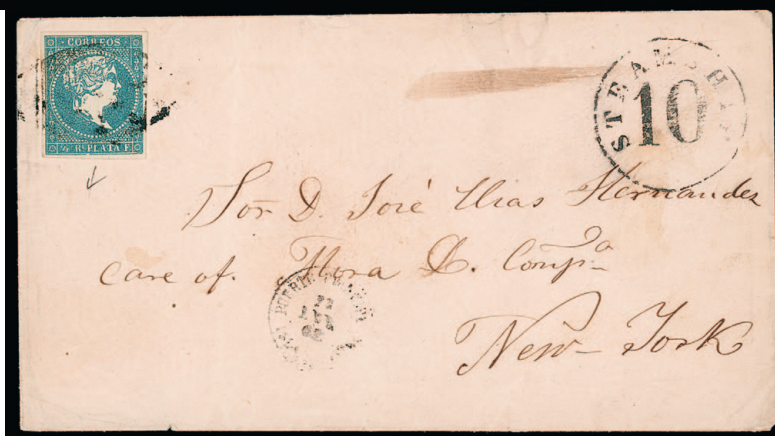 CORREOS
½ Rl PLATA F.
STEAMSHIP
10
Sor. D. José Elias Hernandez
care of. Mora & Comp.a
New-York